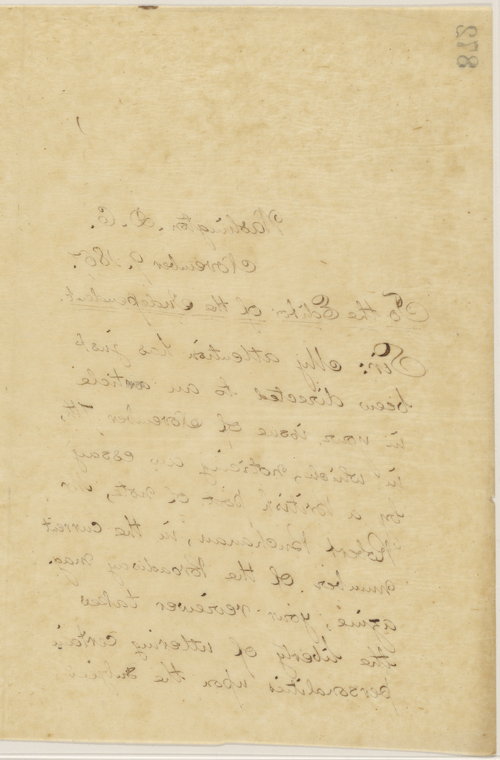 872
Washington. D. C.
November 9. 186
To the Editor of the Independent.
Sir: My attention has just
been directed to an article
in your issue of November 7th,
in which, noticing an essay
by a British poet of note, Mr
Robert Buchanan, in the current
number of the Broadway mag-
azine, your reviewer takes
the liberty of uttering certain
personalities upon the subject